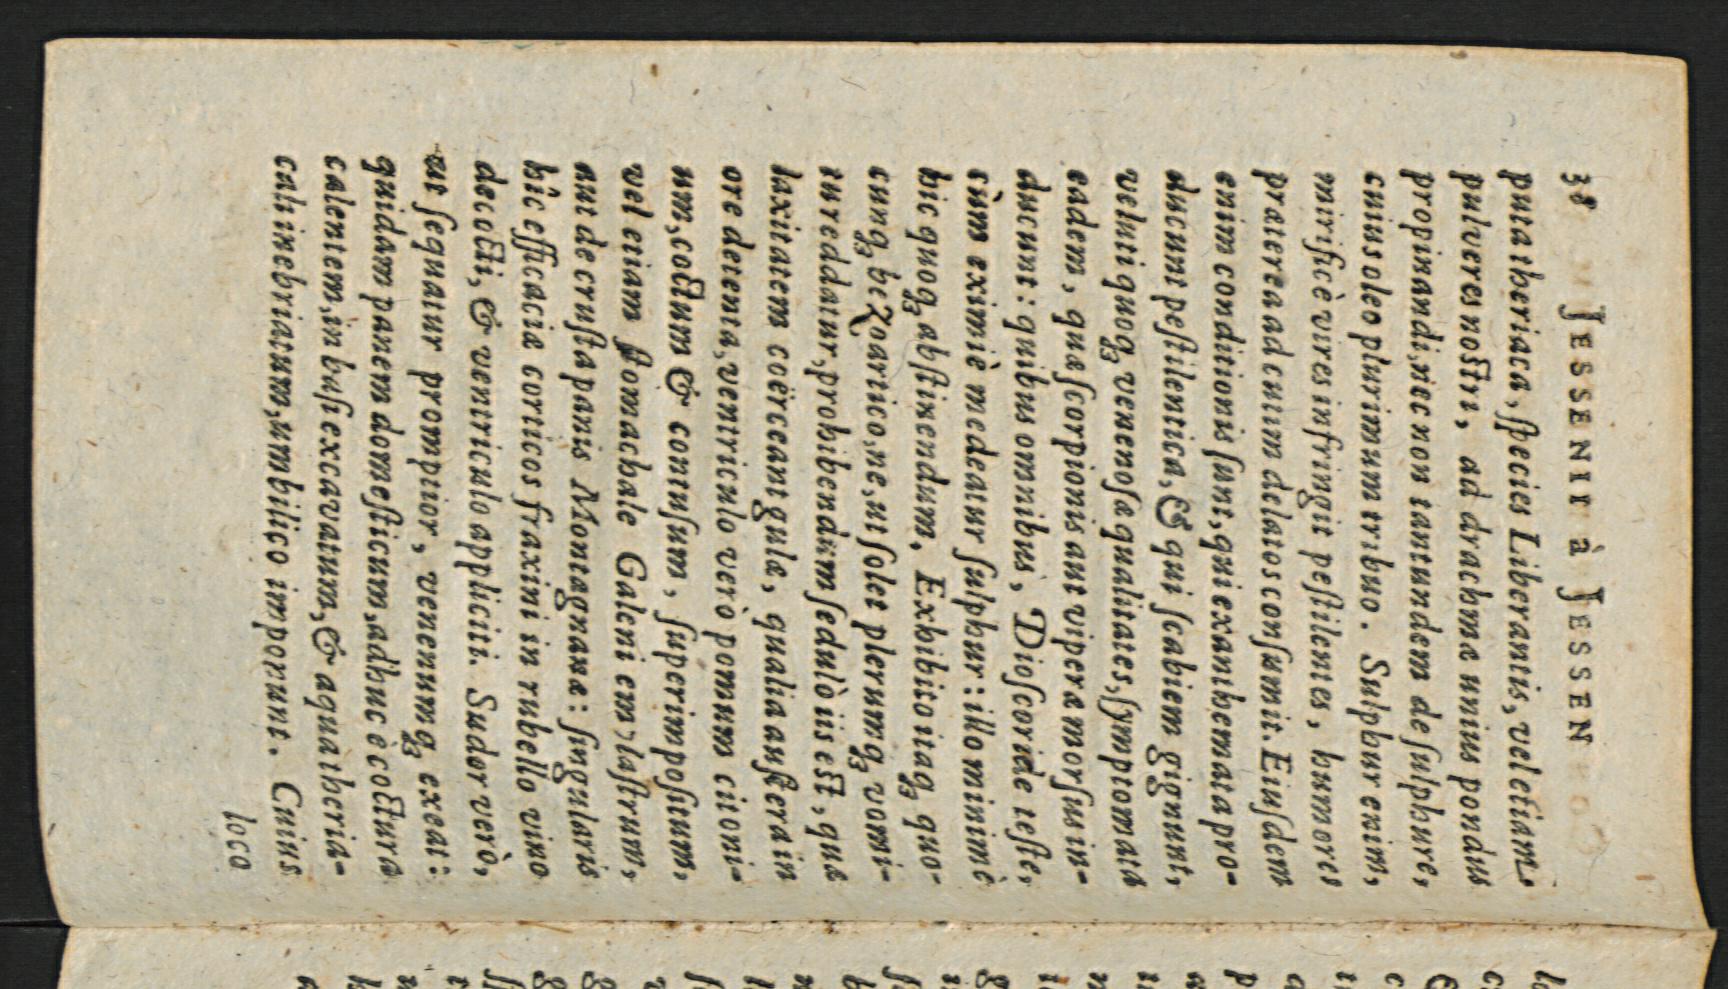 38 JESSENII à JESSEN
puta theriaca, ſpecies Liberantis, vel etiam.
pulveres noſtri, ad drachmæ unius pondus
propinandi, nec non tantundem de ſulphure,
cuius oleo plurimum tribuo. Sulphur enim,
mirificè vires infringit peſtilentes, humores
præterea ad cutim delatos conſumit. Eiuſdem
enim conditionis ſunt, qui exanthemata pro-
ducunt peſtilentica, & qui ſcabiem gignunt,
veluti quoq; venenoſæ qualitates, ſymptomata
eadem, quæ ſcorpionis aut viperæ morſu in-
ducunt: quibus omnibus, Dioſcoride teſte,
cùm eximiè medeatur ſulphur: illo minimè
hic quoq; abſtinendum. Exhibito itaq; quo-
cunq; bezoartico, ne, ut ſolet plerumq; vomi-
tu reddatur, prohibendum ſedulò iis eſt, quæ
laxitatem coërceant gulæ, qualia auſtera in
ore detenta, ventriculo verò pomum citoni-
um, coctum & contuſum, ſuperimpoſitum,
vel etiam ſtomachale Galeni emplaſtrum,
aut de cruſta panis Montagnanæ: ſingularis
hîc efficacia cortices fraxini in rubello vino
decocti, & ventriculo appliciti. Sudor verò,
ut ſequatur promptior, venenumq; exeat:
quidam panem domeſticum, adhuc è coctura
calentem, in baſi excavatum, & aqua theria-
cali inebriatum, umbilico imponunt. Cuius
loco